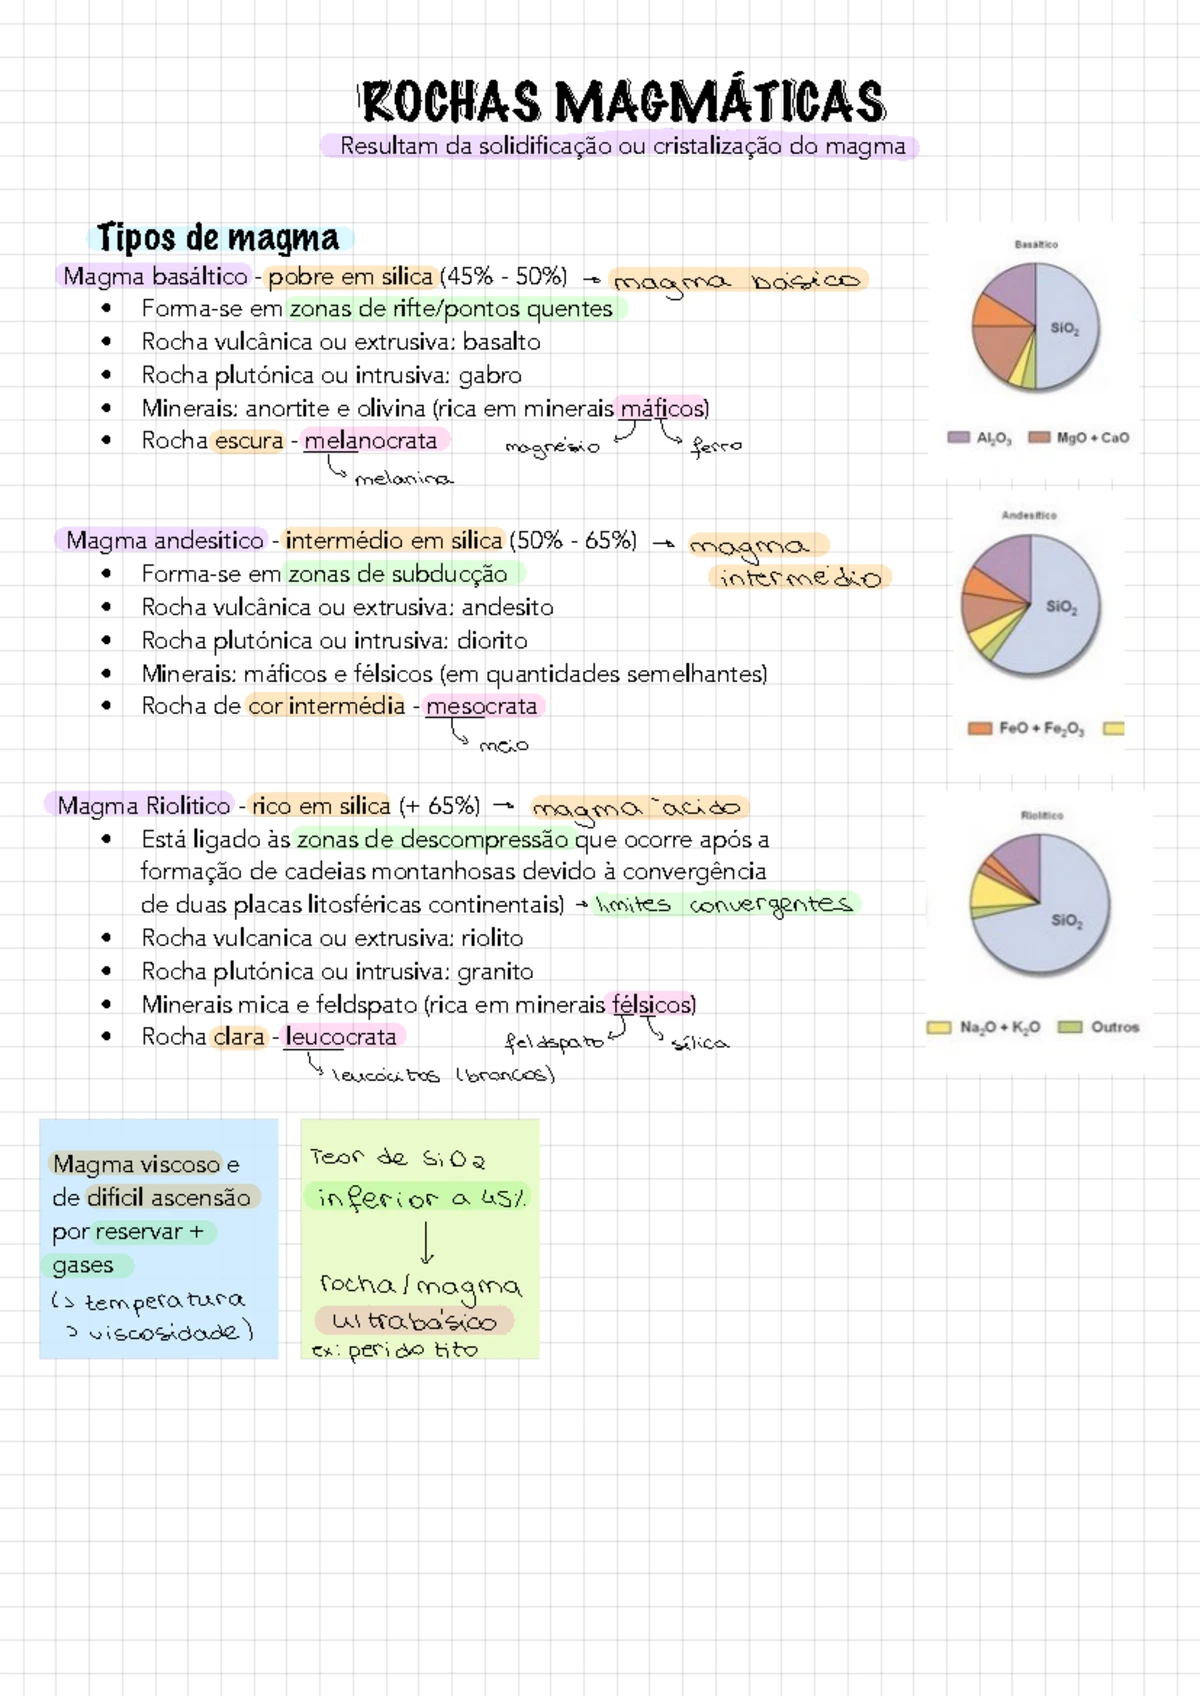 ROCHAS MAGMÁTICAS
Resultam da solidificação ou cristalização do magma
Tipos de magma
Magma basáltico - pobre em sílica (45% - 50%) → magma básico
• Forma-se em zonas de rifte/pontos quentes
• Rocha vulcânica ou extrusiva: basalto
• Rocha plutónica ou intrusiva: gabro
• Minerais: anortite e olivina (rica em minerais máficos)
• Rocha escura - melanocrata
magnésio
ferro
melanina
Basáltico
SiO₂
Al₂O₃
MgO + CaO
Magma andesítico - intermédio em sílica (50% - 65%) → magma
intermédio
• Forma-se em zonas de subducção
• Rocha vulcânica ou extrusiva: andesito
• Rocha plutónica ou intrusiva: diorito
• Minerais: máficos e félsicos (em quantidades semelhantes)
• Rocha de cor intermédia - mesocrata
meio
Andesítico
SiO₂
FeO + Fe₂O₃
Magma Riolítico - rico em sílica (+ 65%) → magma ácido
• Está ligado às zonas de descompressão que ocorre após a
formação de cadeias montanhosas devido à convergência
de duas placas litosféricas continentais) → limites convergentes
• Rocha vulcanica ou extrusiva: riolito
• Rocha plutónica ou intrusiva: granito
• Minerais mica e feldspato (rica em minerais félsicos)
• Rocha clara - leucocrata
feldspato
sílica
leucócitos (brancos)
Riolítico
SiO₂
Na₂O + K₂O
Outros
Magma viscoso e
de difícil ascensão
por reservar +
gases
(> temperatura
> viscosidade)
Teor de SiO2
inferior a 45%
↓
rocha/magma
ultrabásico
ex: peridotito